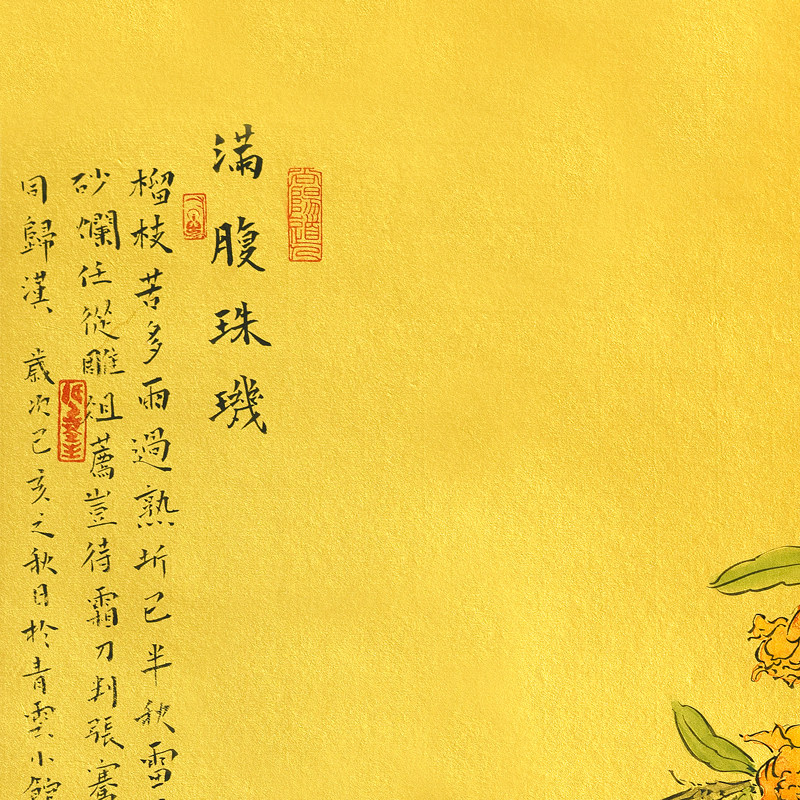 滿腹珠璣
榴枝苦多雨過熟坼已半秋雷
砂爛任從雕俎薦豈待霜刀判張騫
同歸漢 歲次己亥之秋日於青雲小館